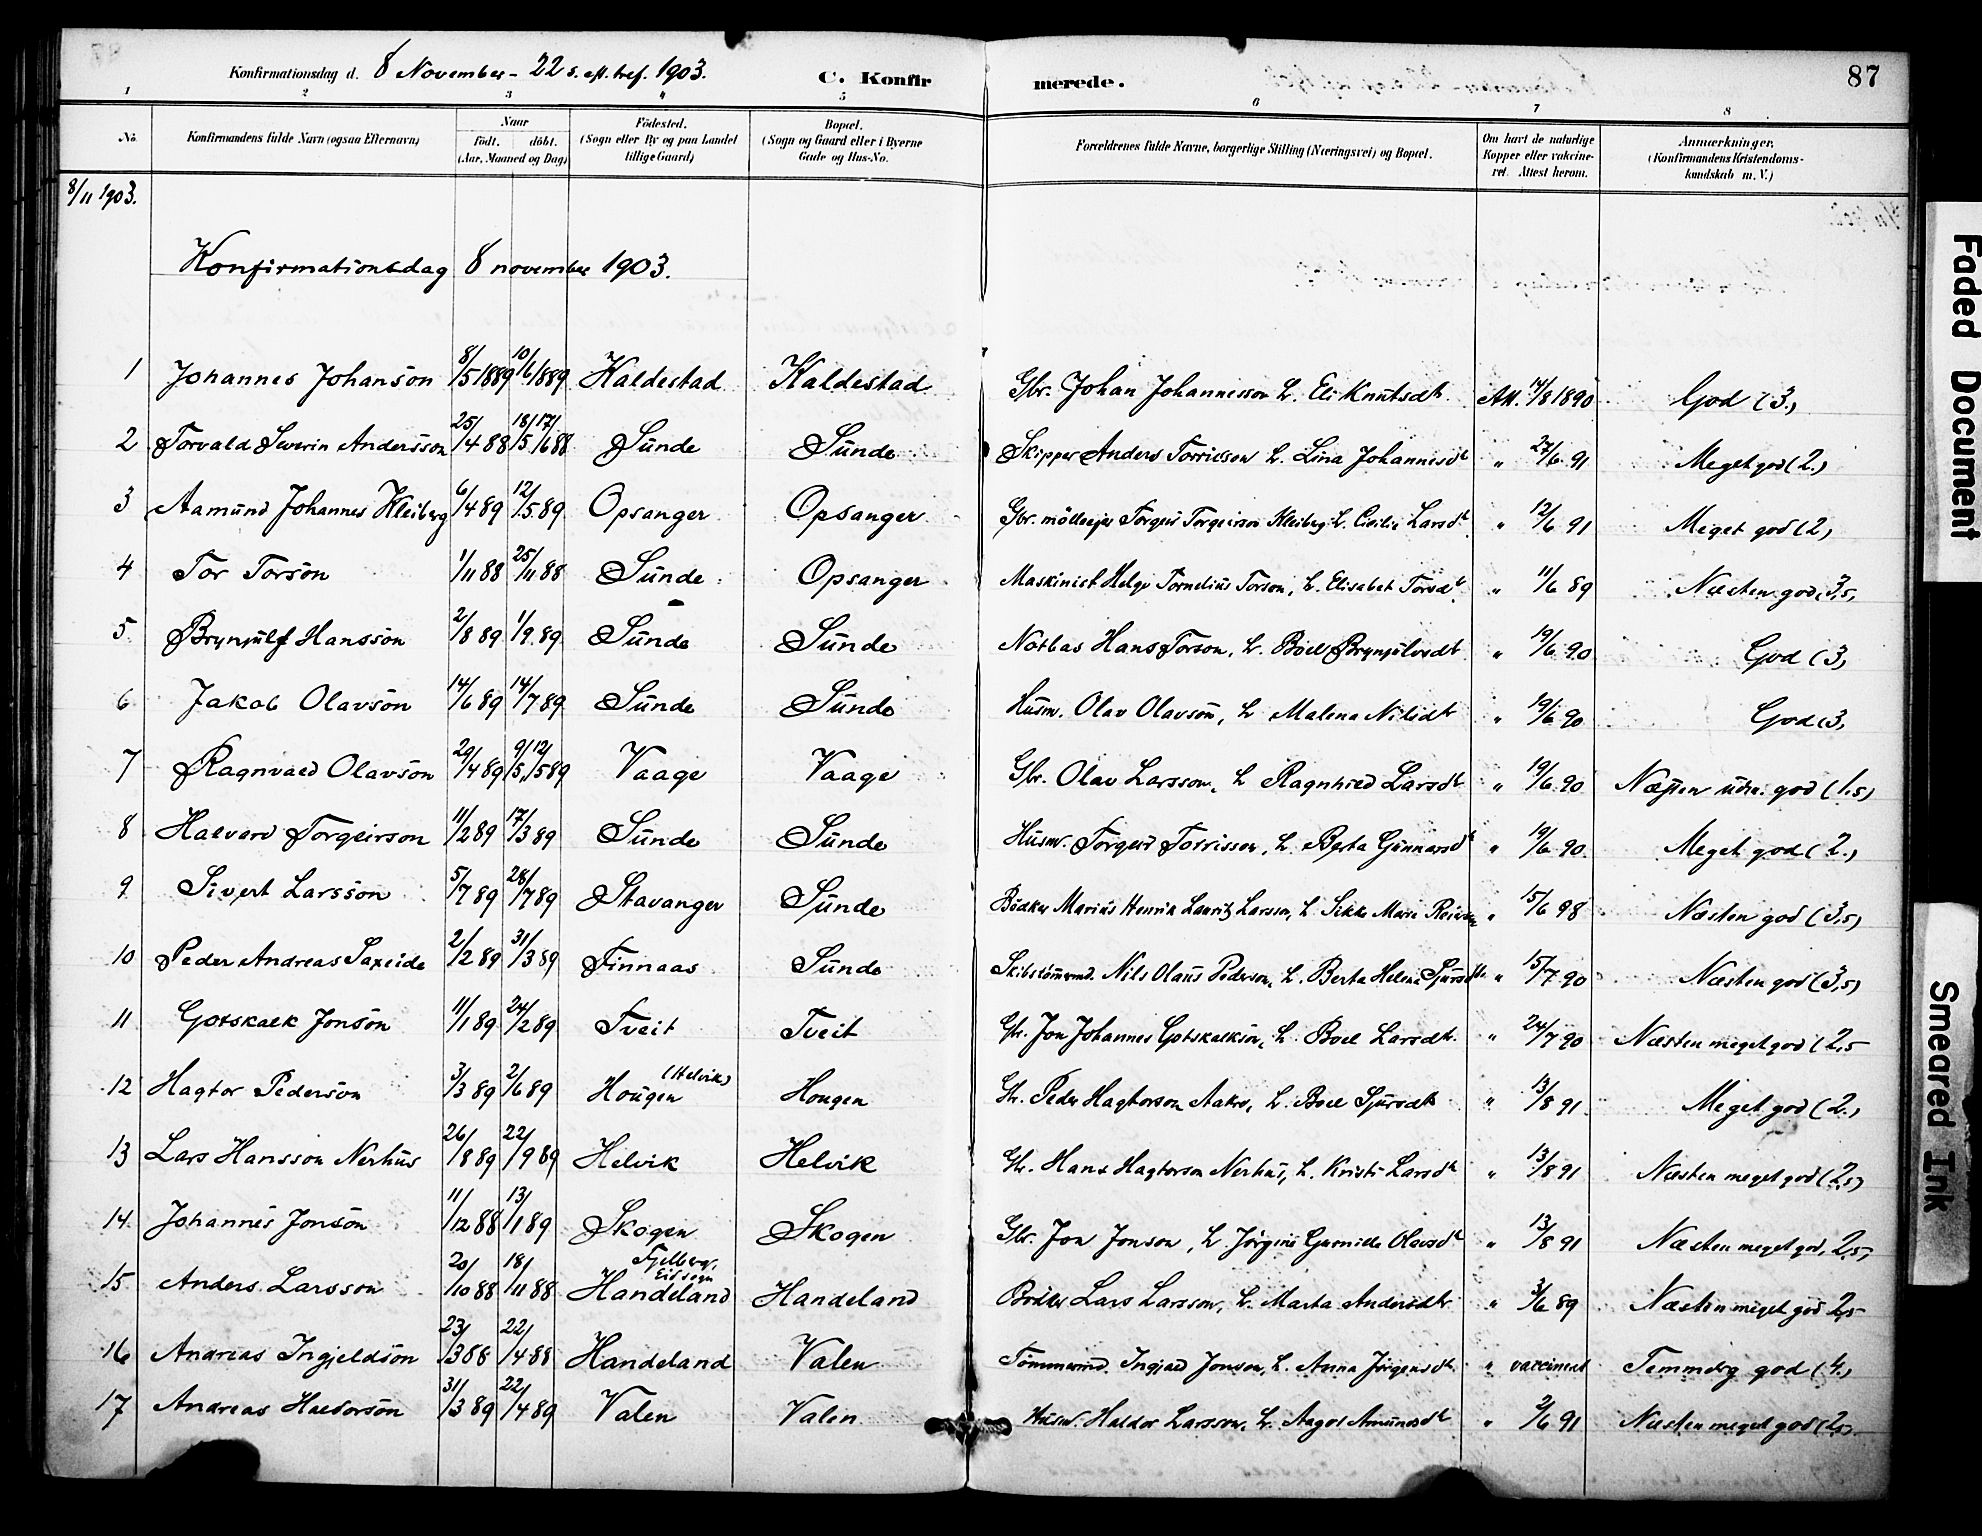 Konfirmationsdag d. 8 November - 22 s. eft. tref. 1903.
C. Konfirmerede.
87
1 2 3 4 5 6 7 8
No.
Konfirmandens fulde Navn (ogsaa Efternavn)
Naar
födt. döbt.
(Aar, Maaned og Dag)
Födested.
(Sogn eller By og paa Landet
tillige Gaard)
Bopæl.
(Sogn og Gaard eller i Byerne
Gade og Hus-No.
Forældrenes fulde Navne, borgerlige Stilling (Næringsvei) og Bopæl.
Om havt de naturlige
Kopper eller vakcine-
ret. Attest herom.
Anmærkninger,
(Konfirmandens Kristendoms-
kundskab m. V.)
8/11 1903.
Konfirmationsdag 8 november 1903.
1 Johannes Johanson 8/5 1889 10/6 1889 Kaldestad Kaldestad Gbr. Johan Johannesson h. Eli Knutsdt. Att. 14/8 1890 God (3.)
2 Torvald Severin Andersson 25/4 88 18/5 17/6 88 Sunde Sunde Skipper Anders Torrisson h. Lina Johannesdt " 27/6 91 Meget god (2.)
3 Aamund Johannes Kleiberg 6/4 89 12/5 89 Opsanger Opsanger Gbr. mölleeier Torgeir Torgeirson Kleiberg h. Cicilie Larsdt " 12/6 91 Meget god (2)
4 Tor Torson 1/11 88 25/11 88 Sunde Opsanger Maskinist Helge Tornelius Torson, h. Elisabet Torsdt. " 11/6 89 Næsten god, 3,5,
5 Brynjulf Hansson 2/8 89 1/9. 89 Sunde Sunde Notbas Hans Torson, h. Boel Brynjulvsdt " 19/6 90 God (3)
6 Jakob Olavson 14/6 89 14/7 89 Sunde Sunde Husm. Olav Olavson, h. Malena Nilsdt " 19/6 90 God (3)
7 Ragnvald Olavson 29/4 89 9/5, 12/5 89 Vaage Vaage Gbr. Olav Larsson, h Ragnhild Larsdt " 19/6 90 Næsten udm. god (1.5)
8 Halvard Torgeirson 11/2 89 17/3 89 Sunde Sunde Husm. Torgeir Torrisson, h. Berta Gunnarsdt " 19/6 90. Meget god (2.)
9 Sivert Larsson 5/7 89 28/7 89 Stavanger Sunde Bödker Marius Henrik Lauritz Larsson, h. Sikke Marie " 15/6 98 Næsten god (3,5)
10 Peder Andreas Saxeide 2/2 89 31/3 89 Finnaas Sunde Skibstömmrmd. Nils Olaus Pederson, h. Berta Helena Sjursdtr " 15/7 90 Næsten god (3,5)
11 Gotskalk Jonson 11/1 89 24/2 89 Tveit Tveit Gbr. Jon Johannes Gotskalkson, h. Boel Larsdtr. " 24/7 90 Næsten meget god (2,5
12 Hagtor Pederson 3/3 89 2/6 89 Hougen (Helvik) Hougen Gbr. Peder Hagtorson Aakre, h. Boel Sjursdtr " 13/8 91 Meget god (2.)
13 Lars Hansson Nerhus 26/8 89 22/9 89 Helvik Helvik Gbr. Hans Hagtorson Nerhus, h. Kristi Larsdt " 13/8 91 Næsten meget god (2,5)
14. Johannes Jonson 11/12 88 13/1 89 Skogen Skogen Gbr. Jon Jonson, h. Jörgine Gurnille Olavsdt " 13/8 91 Næsten meget god, 2,5,
15. Anders Larsson 20/10 88 18/11 88 Fjelberg, Eid sogn Handeland Handeland Bödker Lars Larsson, h. Marta Andersdtr " 3/6 89 Næsten meget god 2,5
16 Andreas Ingjeldson 23/3 88 22/4 88 Handeland Valen Tömmermd. Ingjeld Jonson, h. Anna Jörgensdt. " vaccineret Temmelig god (4.)
17 Andreas Haldorson 31/3 89 22/4 89 Valen Valen Husm. Haldor Larsson, h. Aagot Amundsdt " 2/6 91 Næsten meget god (2,5).
Faded Document
Smeared Ink